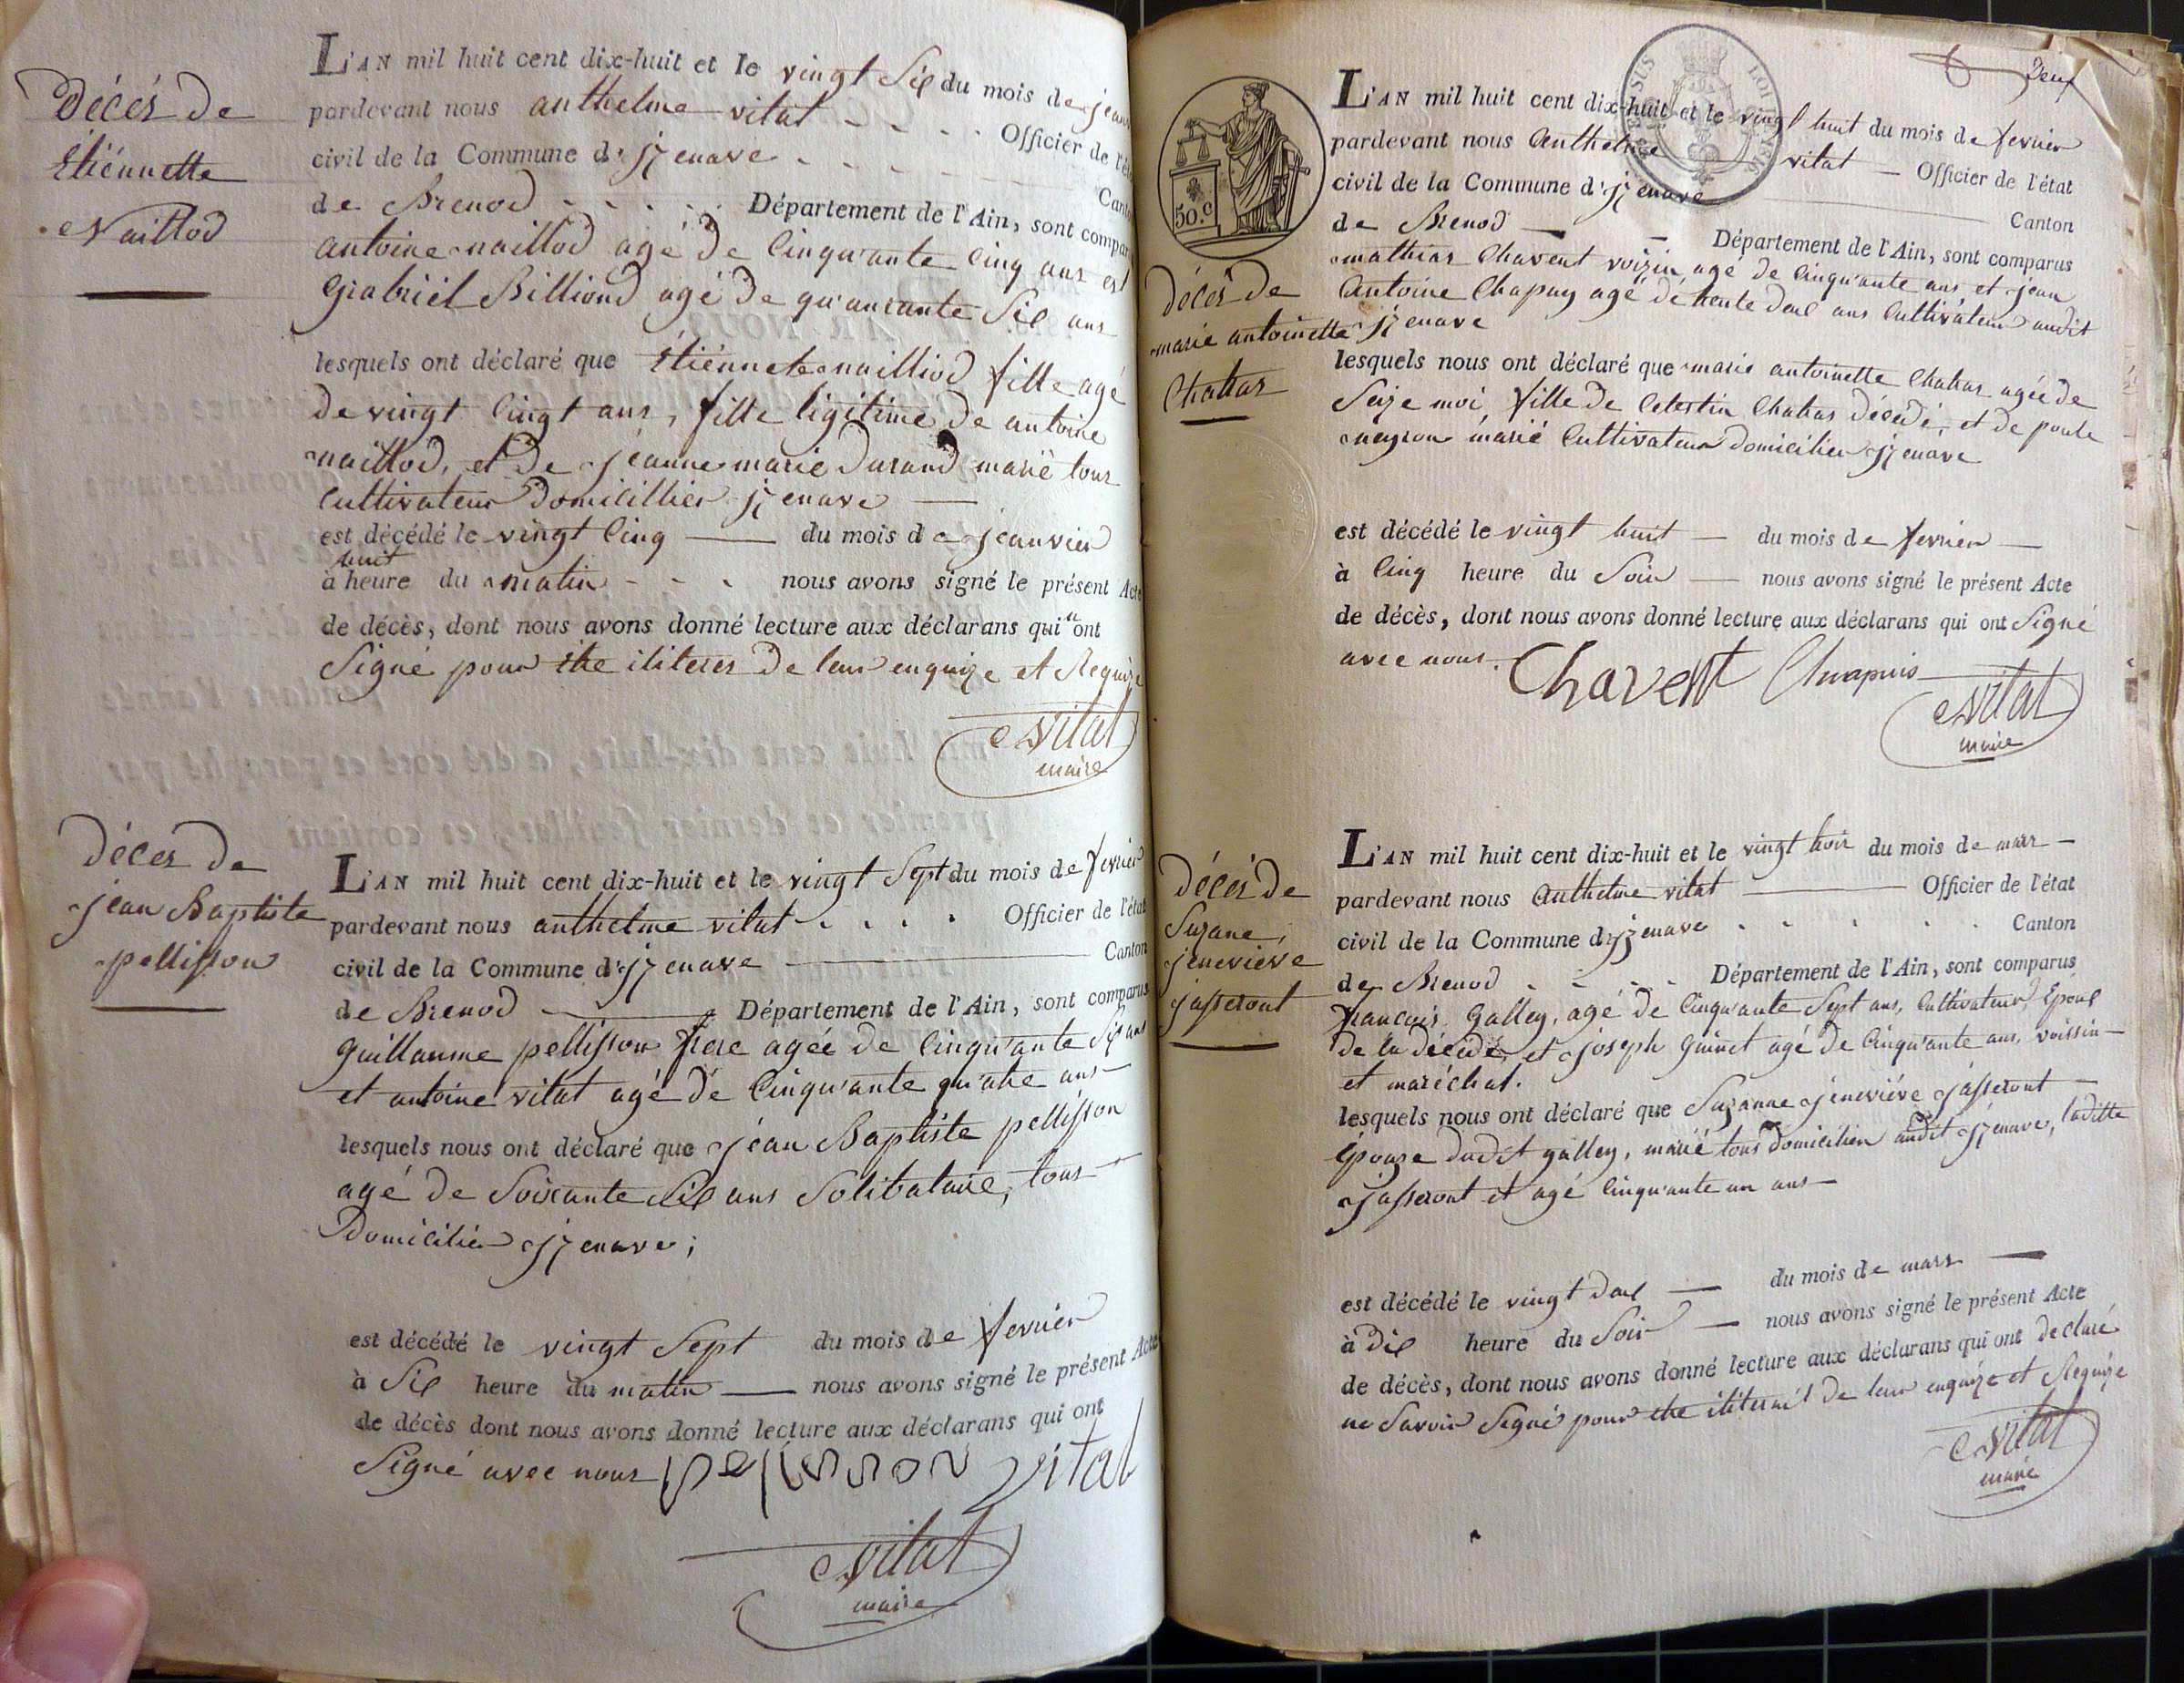 Décés de
Etiénnette
Naillod
L'AN mil huit cent dix-huit et le vingt Six du mois de jeanv
pardevant nous anthelme vital - - - - Officier de l'éta
civil de la Commune d' jzenave - - - Cant
de Brenod - - - - Département de l'Ain, sont compar
antoine naillod agé de Cinqu'ante Cinq ans est
Giabriél Billiond agé de qu'auxante Six ans
lesquels ont déclaré que Étiénnete nailliod fille agé
de vingt Cingt ans, fille ligitime de antoine
naillod, et de jéanne marie Durand marié tous
Cultivateur Domicillier jzenave
est décédé le vingt Cinq du mois de jeanvier
huit
à heure du matin - - - nous avons signé le présent Acte
de décès, dont nous avons donné lecture aux déclarans qui ont
Signé pour iliterés de leur enquize et Requize
Vital
maire
Décés de
jean Baptiste
pellisson
L'AN mil huit cent dix-huit et le vingt Sept du mois de fevrier
pardevant nous anthelme vital . . . . Officier de l'état
civil de la Commune d' jzenave Canton
de Brenod Département de l'Ain, sont comparus
Guillaume pellisson frere agée de Cinqu'ante Six ans
et antoine vital agé dé Cinqu'ante qu'atre ans
lesquels nous ont déclaré que jéan Baptiste pellisson
agé de Soixante Six ans Solibataire, tous
Domicilier jzenave;
est décédé le vingt Sept du mois de fevrier
à Six heure du matin nous avons signé le présent Acte
de décès dont nous avons donné lecture aux déclarans qui ont
Signé avec nous pelisson vital
Vital
maire
Deux
50.c
L'AN mil huit cent dix-huit et le vingt huit du mois de fevrier
pardevant nous Anthelme vital — Officier de l'état
civil de la Commune d' jzenave Canton
de Brenod — — Département de l'Ain, sont comparus
Décés de
marie antoinette
Chatras
mathias Chavent voizin, agé de Cinqu'ante ans, et jean
Antoine Chapuy agé dé trente deux ans Cultivateur audit
jzenave
lesquels nous ont déclaré que marie antoinette Chatras agée de
Seize moi, fille de Celestin Chatras décédé, et de poule
neyron marié Cultivateur Domicilier jzenave
est décédé le vingt huit — du mois de fevrier —
à Cinq heure du Soir — nous avons signé le présent Acte
de décès, dont nous avons donné lecture aux déclarans qui ont Signé
avec nous. Chavent Chapuis
Vital
maire
Décés de
Suzane,
jeneviéve
jasseront
L'AN mil huit cent dix-huit et le vingt trois du mois de mars —
pardevant nous Anthelme vital Officier de l'état
civil de la Commune d' jzenave . . . . . Canton
de Brenod - - - - Département de l'Ain, sont comparus
francois Galley, agé de Cinqu'ante Sept ans, Cultivateur, Epoux
de la décédé, et joseph Guinet agé de Cinqu'ante ans, voissin
et maréchal.
lesquels nous ont déclaré que Suzanne jéneviéve jasseront
Epouze dudit galley, marié tous domicilier audit jzenave, laditte
jasseront et agé Cinqu'ante un ans
est décédé le vingt deux — du mois de mars —
à dix heure du Soir — nous avons signé le présent Acte
de décès, dont nous avons donné lecture aux déclarans qui ont déclaré
ne Savoir Signé pour de leur enquize et Requize
Vital
maire